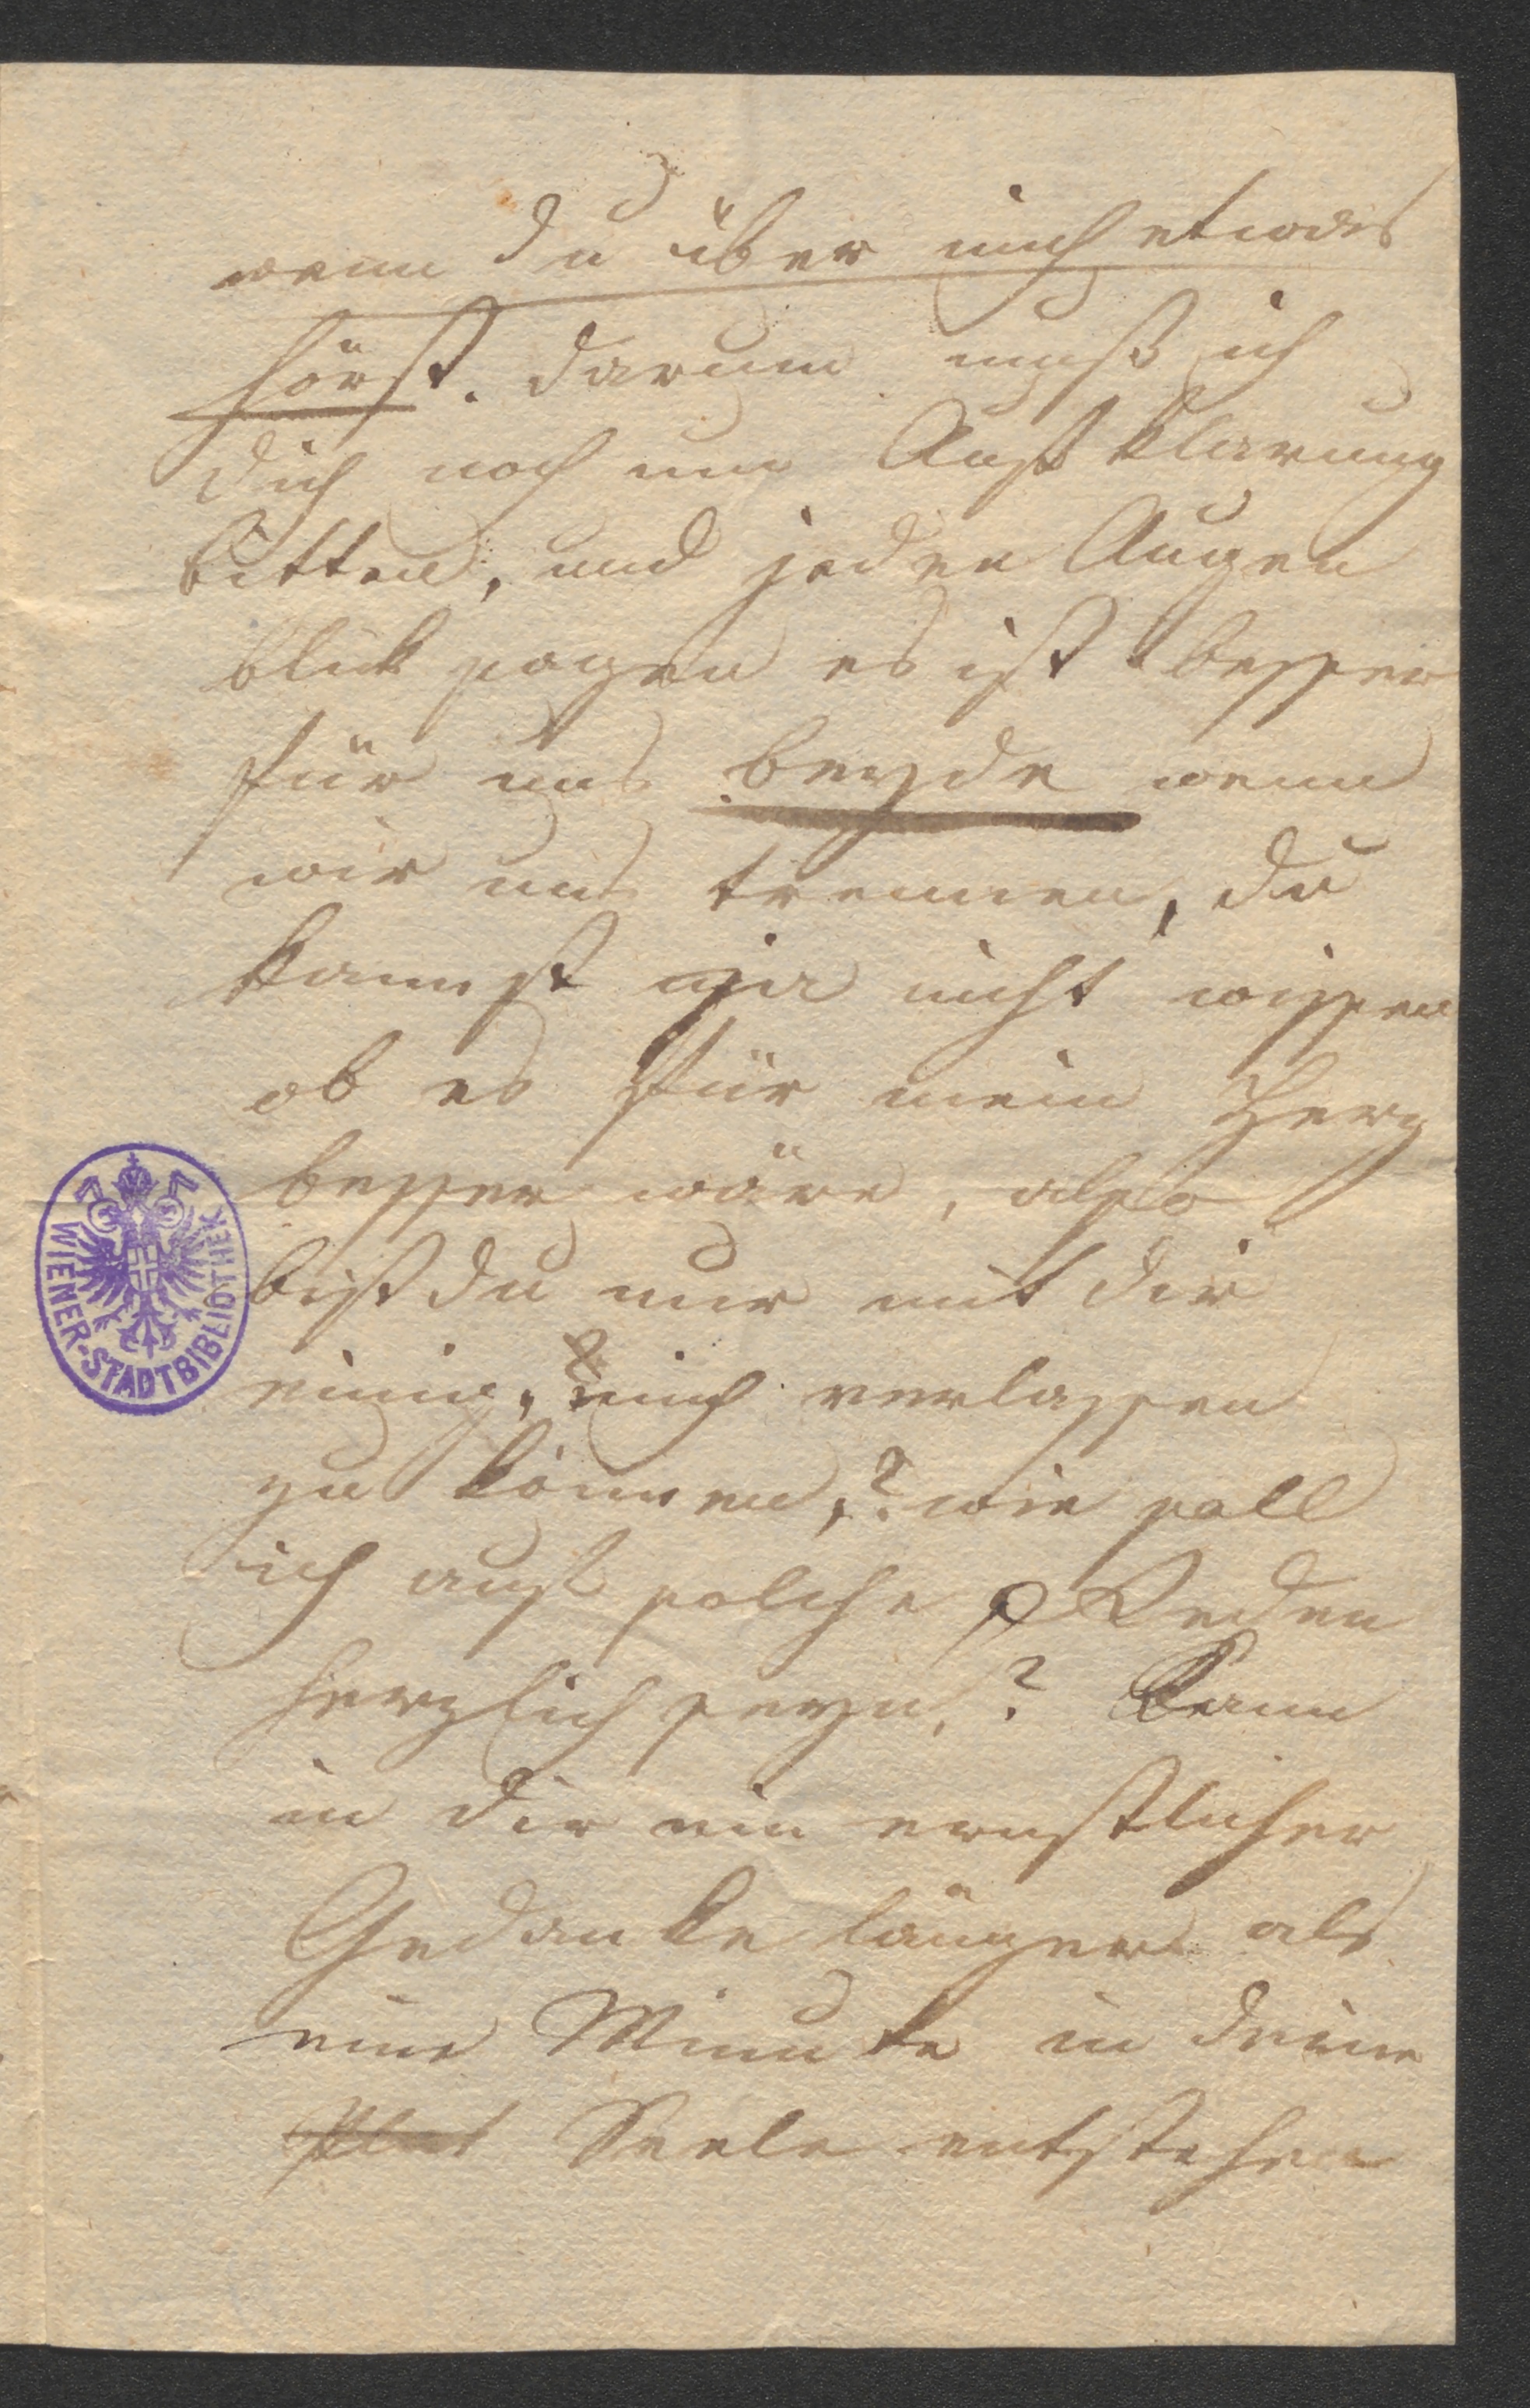 wenn du über mich etwas
hörst. darum muß ich
dich noch um Aufklärung
bitten, und jeden Augen
blick sagen es ist besser
für uns beyde wenn
wir uns trennen, du
kannst ja nicht wissen
ob es für mein Herz
besser wäre, also
bist du nur mit dir
einig, mich verlassen
zu können,? wie soll
ich auf solche Reden
herzlich seyn,? Kann
in dir ein ernstlicher
Gedanke länger als
eine Minute in deine
Seele entstehen
WIENER-STADTBIBLIOTHEK